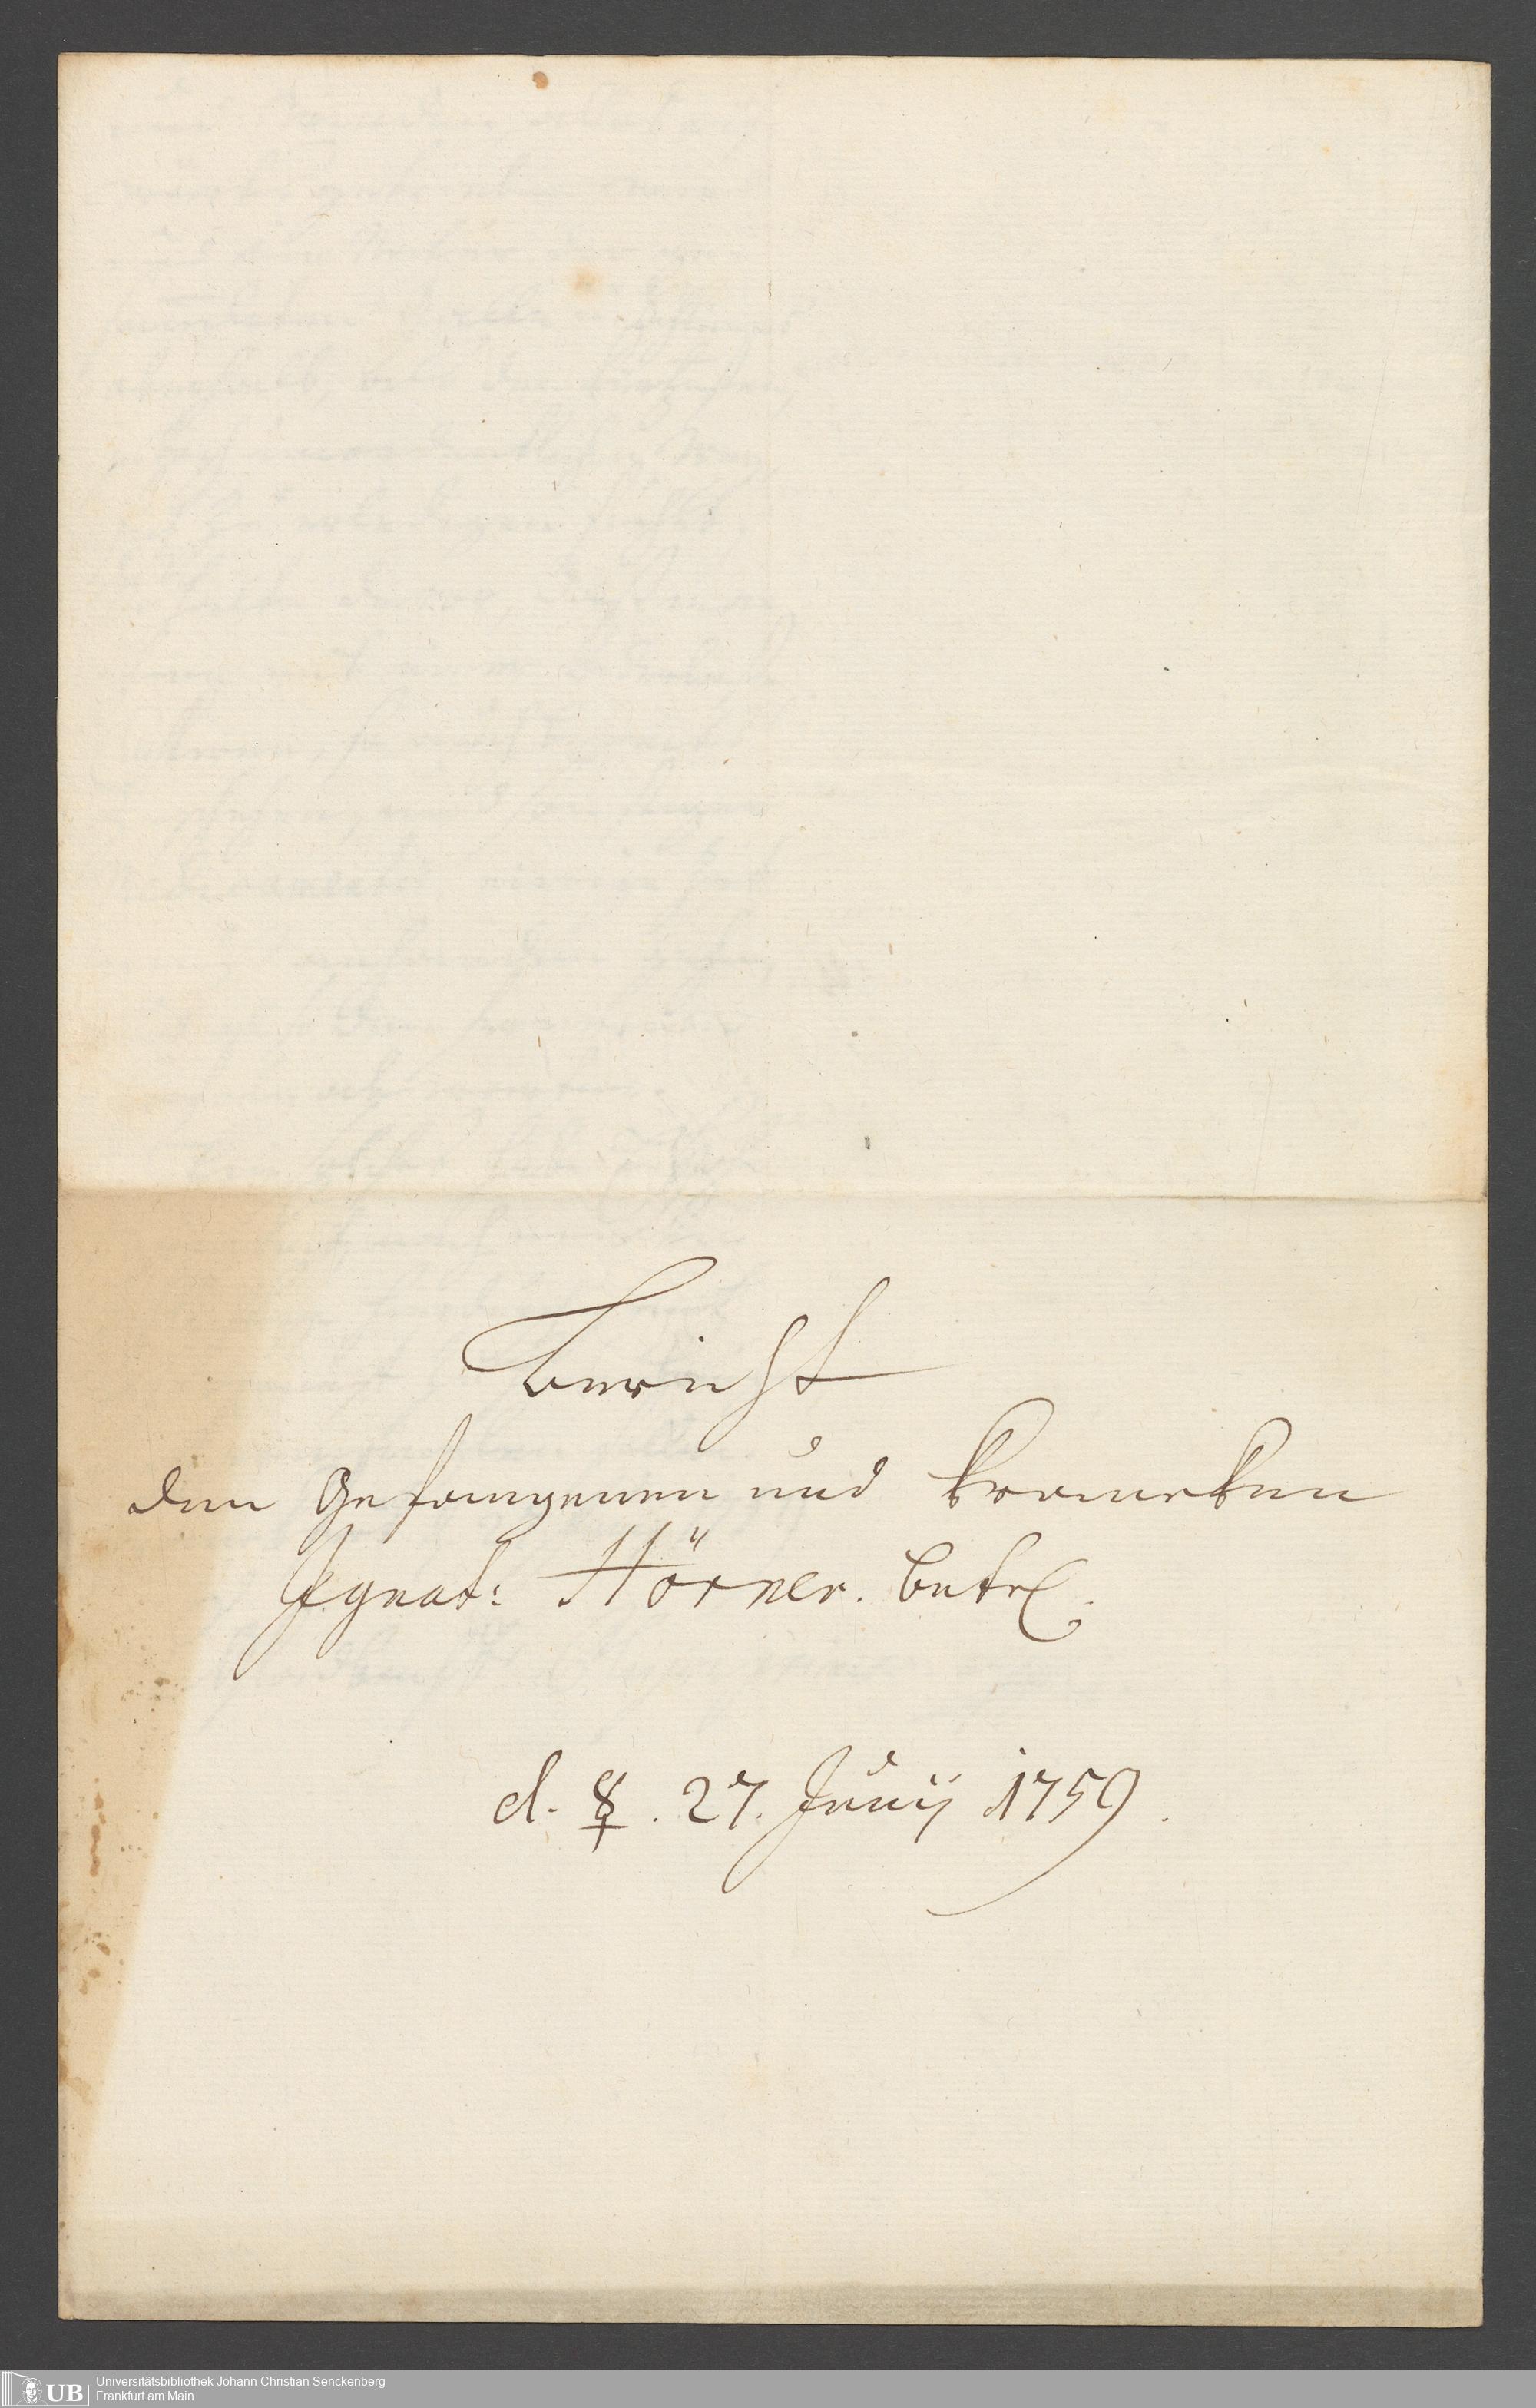 Bericht
den Gefangenen und krancken
Ignat: Hörner. betr.
d. ☿. 27. Junij 1759.
UB
Universitätsbibliothek Johann Christian Senckenberg
Frankfurt am Main